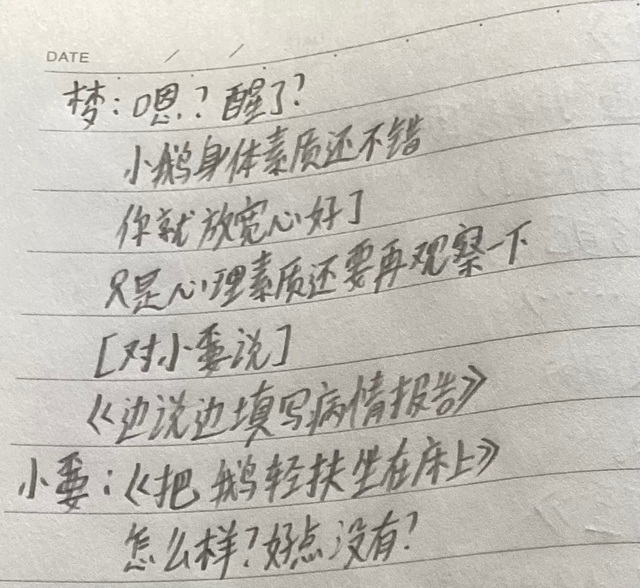 DATE / /
梦:嗯?醒了?
小鹅身体素质还不错
你就放宽心好了
只是心理素质还要再观察一下
[对小要说]
《边说边填写病情报告》
小要:《把鹅轻扶坐在床上》
怎么样?好点没有?